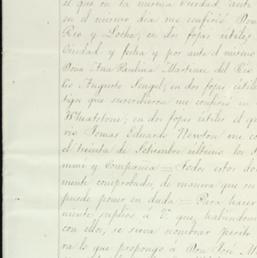 el que en la misma ciudad, ante
en el mismo dia me confirió Don
Rio y Locha, en dos fojas útiles
Ciudad, y fecha y por ante el mismo
Dona Ana Paulina Martinez del Rio
lio Augusto Nengel, en dos fojas útiles
tigu que sucedieron me confirió
Wheatstone; en dos fojas útiles el qu
vio Tomas Eduardo Newton me co
el treinta de Setiembre ultimo los
mini y Compañia = Todos estos do
mente comprobados, de manera que no
puede poner en duda = Para hacer
mente suplico á V. que, habiendome
con ellos, se sirva nombrar perito
ra lo que propongo á Don José M